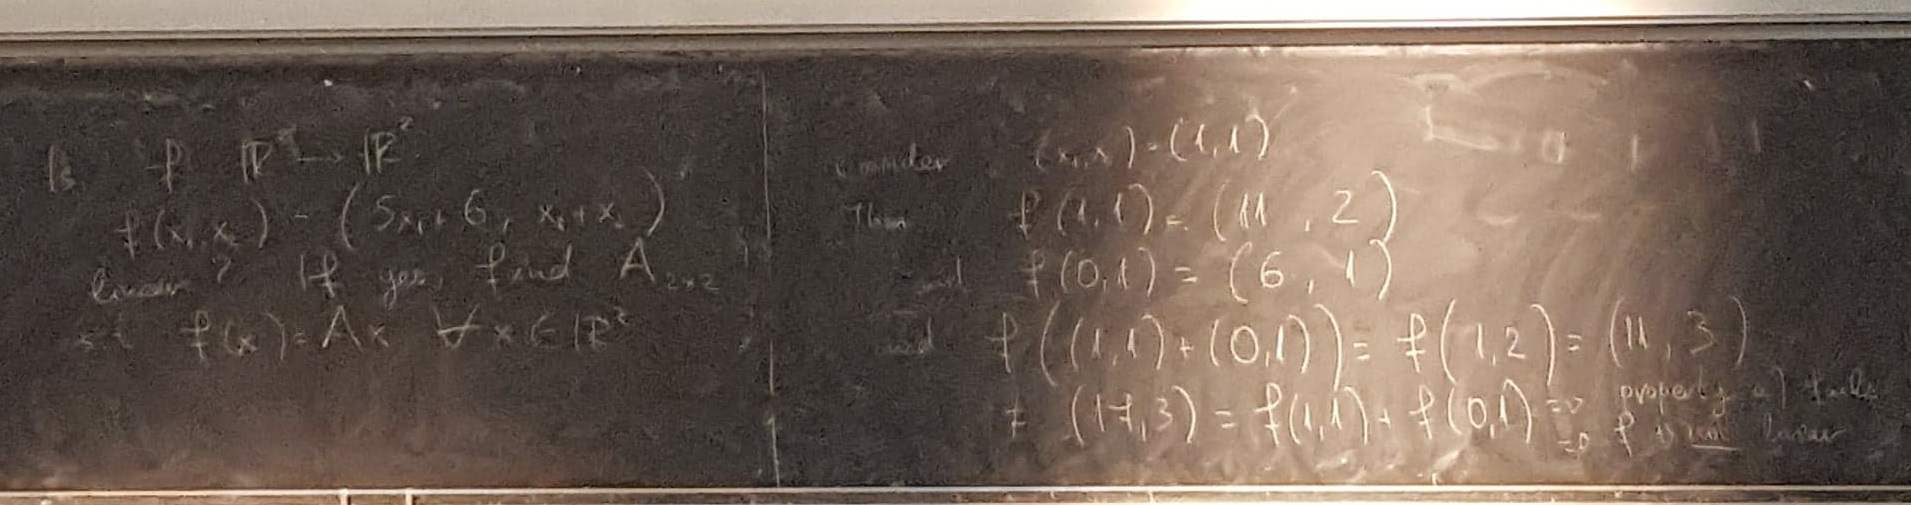 Is f ℝ² → ℝ²
f(x₁, x₂) = (5x₁ + 6, x₁ + x₂)
linear? If yes, find A₂ₓ₂
st f(x) = Ax ∀ x ∈ ℝ²
consider (x₁, x₂) = (1, 1)
Then f(1, 1) = (11, 2)
and f(0, 1) = (6, 1)
and f((1, 1) + (0, 1)) = f(1, 2) = (11, 3)
≠ (17, 3) = f(1, 1) + f(0, 1) => property a) fails
=> f is not linear